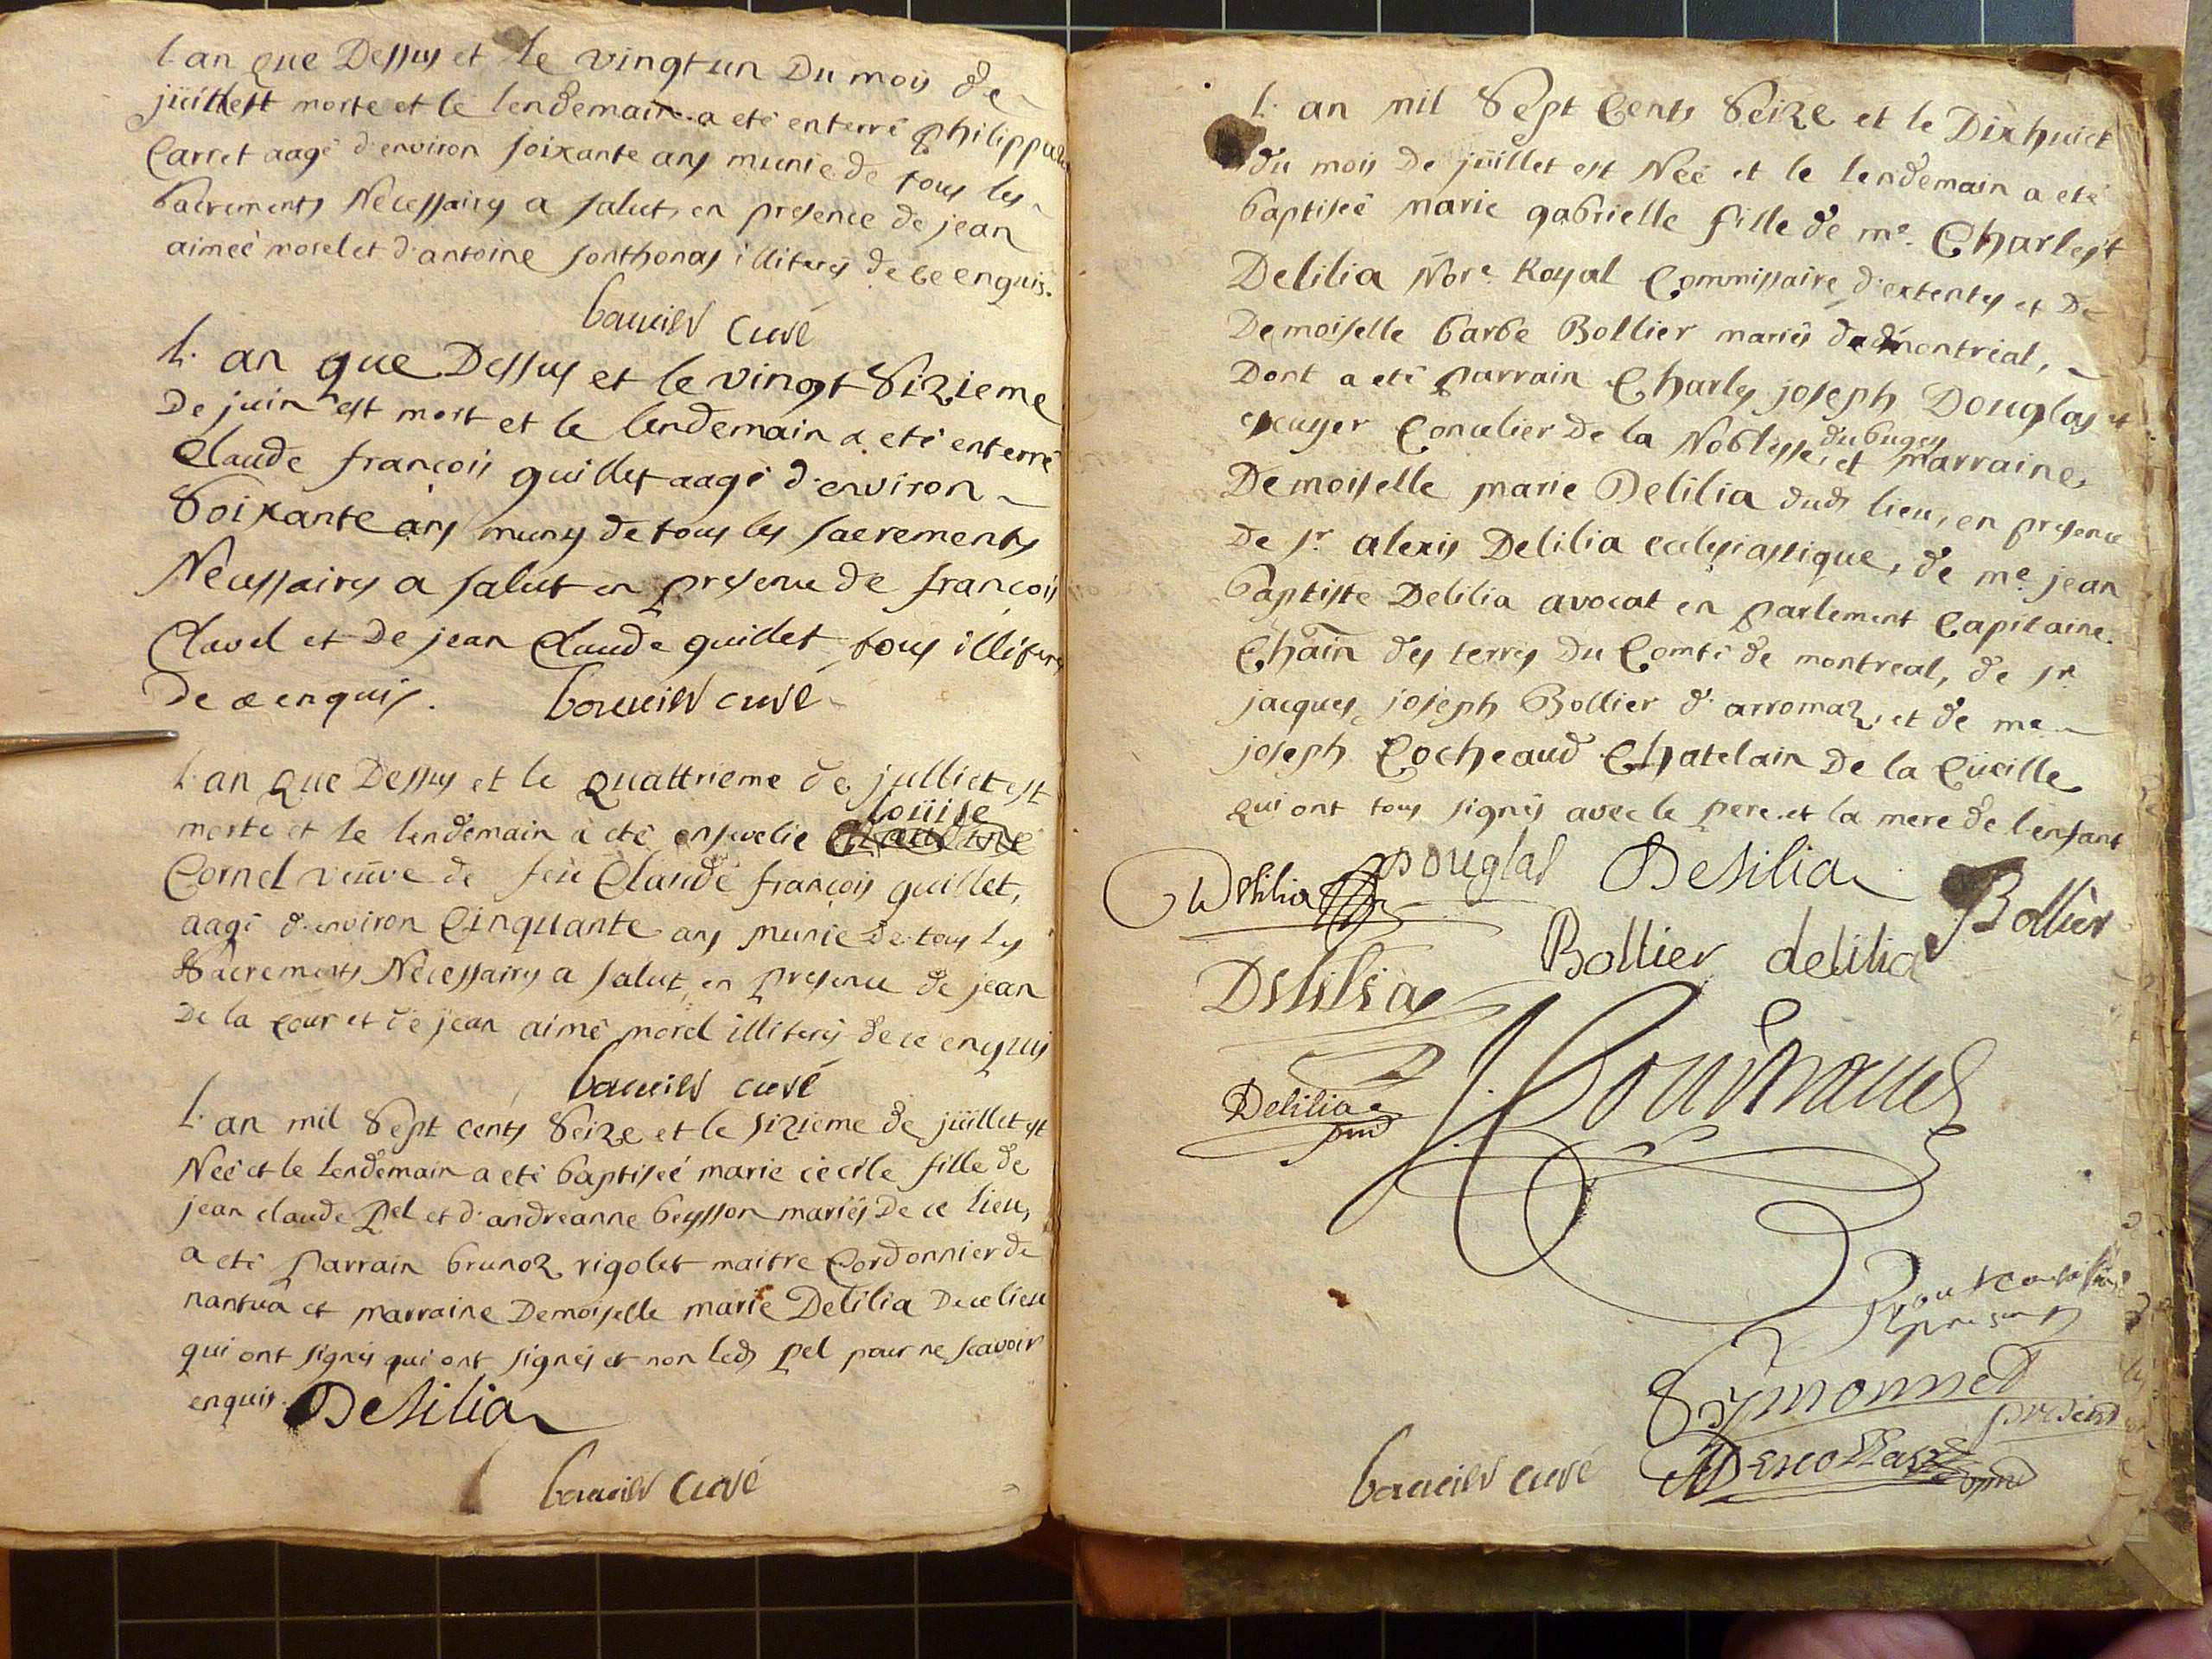 L'an que Dessus et le vingt un Du mois de
juillest morte et le lendemain a eté enterré philippa
Carret aagé d'environ soixante ans munie de tous les
Sacrements Necessaires a salut, en presence de jean
aimeé morel et d'antoine sonthonas illiterés de ce enquis.
curé
L'an que Dessus et le vingt Sizieme
De juin est mort et le lendemain a eté enterré
Claude françois guillet aagé d'environ
Soixante ans muny de tous les sacrements
Necessaires a salut en presence de françois
Clavel et De jean Claude guillet tous illiteres
De ce enquis. curé
L'an que Dessus et le quattrieme de julliet est
louise
morte et le lendemain a eté ensevelie
Cornel veuve de feu Claude françois guillet,
aagé d'environ Cinquante ans munie De tous les
Sacrements Necessaires a salut, en presence de jean
De la cour et de jean aimé morel illiterés de ce enquis
curé
L'an mil Sept cents Seize et le sizieme de juillet est
Neé et le lendemain a eté baptiseé marie cecile fille de
jean claude pel et d'andreanne beysson mariés De ce lieu,
a eté parrain brunoz rigolet maitre Cordonnier de
nantua et marraine Demoiselle marie Delilia De ce lieu
qui ont signés qui ont signés et non led pel pour ne scavoir
enquis. Delilia
curé
L'an mil Sept Cents Seize et le Dixhuict
du mois De juillet est Neé et le lendemain a eté
baptiseé marie gabrielle fille de me. Charles
Delilia Nore. Royal Commissaire d'extentes et De
Demoiselle barbe Bollier mariés montreal,
Dont a eté parrain Charles joseph Douglas
ecuyer Conselier De la Noblesse du bugey et marraine
Demoiselle marie Delilia dud lieu, en presence
De sr. alexis Delilia eclesiastique, de me. jean
baptiste Delilia avocat en parlement Capitaine
Chain des terres Du Comté de montreal, de sr.
jacques joseph Bollier d'arromaz, et de me
joseph Cocheaud Chatelain De la Cueille
qui ont tous signés avec le pere et la mere de l'enfant
Delilia Douglas Delilia Bollier
Bollier delilia
Delilia
Delilia
Symonnet
present
curé